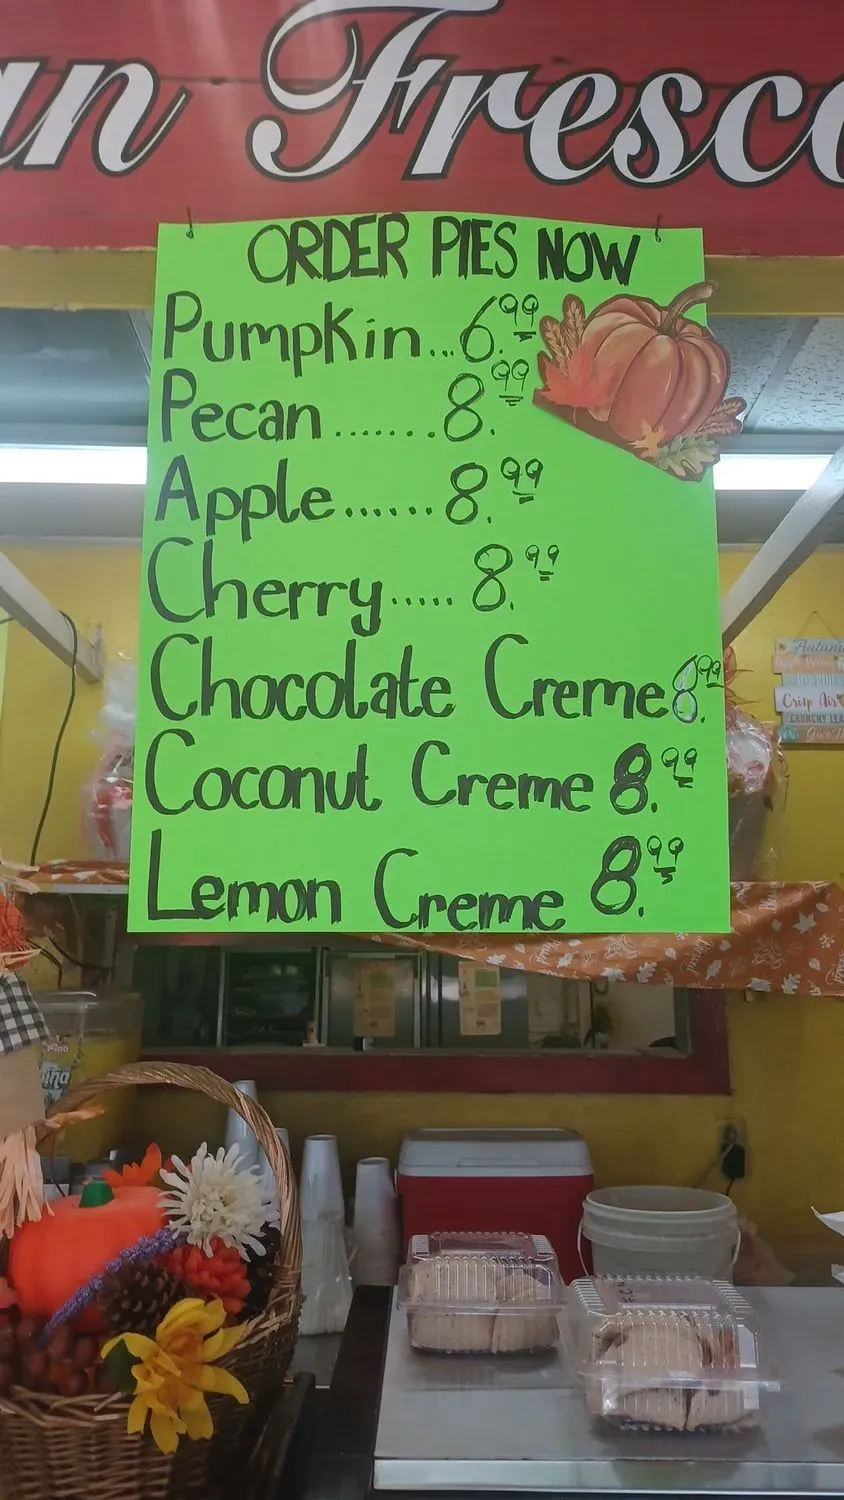 an Fresco
ORDER PIES NOW
Pumpkin...6.99
Pecan.......8.99
Apple......8.99
Cherry.....8.99
Chocolate Creme 8.99
Coconut Creme 8.99
Lemon Creme 8.99
Autumn
Crisp Air
CRUNCHY LEA
Give Th